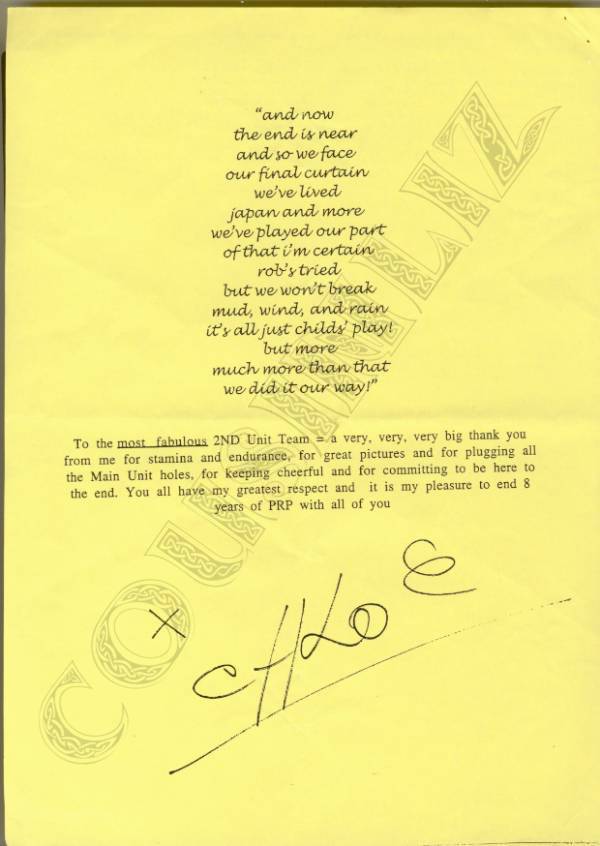 “and now
the end is near
and so we face
our final curtain
we've lived
japan and more
we've played our part
of that i'm certain
rob's tried
but we won't break
mud, wind, and rain
it's all just childs' play!
but more
much more than that
we did it our way!”
To the most fabulous 2ND Unit Team = a very, very, very big thank you
from me for stamina and endurance, for great pictures and for plugging all
the Main Unit holes, for keeping cheerful and for committing to be here to
the end. You all have my greatest respect and it is my pleasure to end 8
years of PRP with all of you
X
CHLOE
COUSINLIZ